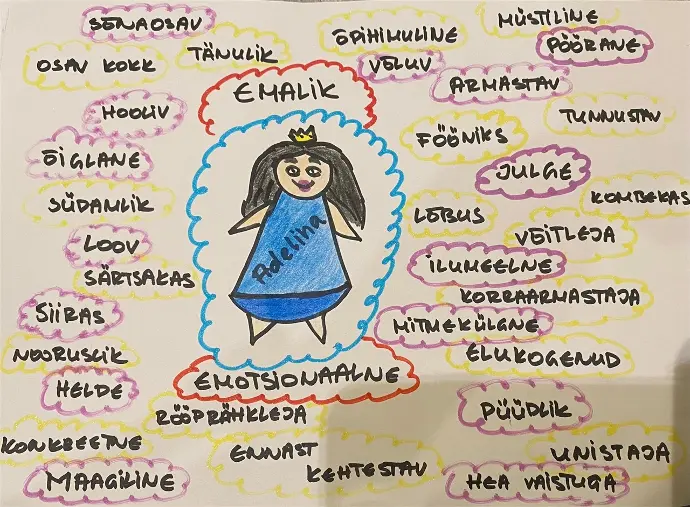 SÕNAOSAV
ÕPIHIMULINE
MÜSTILINE
OSAV KOKK
TÄNULIK
VÕLUV
PÖÖRANE
EMALIK
ARMASTAV
HOOLIV
TUNNUSTAV
FÖÖNIKS
ÕIGLANE
JULGE
SÜDAMLIK
KOMBEKAS
LÕBUS
VÕITLEJA
LOOV
Adeliina
SÄRTSAKAS
ILUMEELNE
KORRAARMASTAJA
SIIRAS
MITMEKÜLGNE
NOORUSLIK
ELUKOGENUD
HELDE
EMOTSIONAALNE
RÖÖPRÄHKLEJA
PÜÜDLIK
KONKREETNE
ENNAST
KEHTESTAV
UNISTAJA
MAAGILINE
HEA VAISTUGA